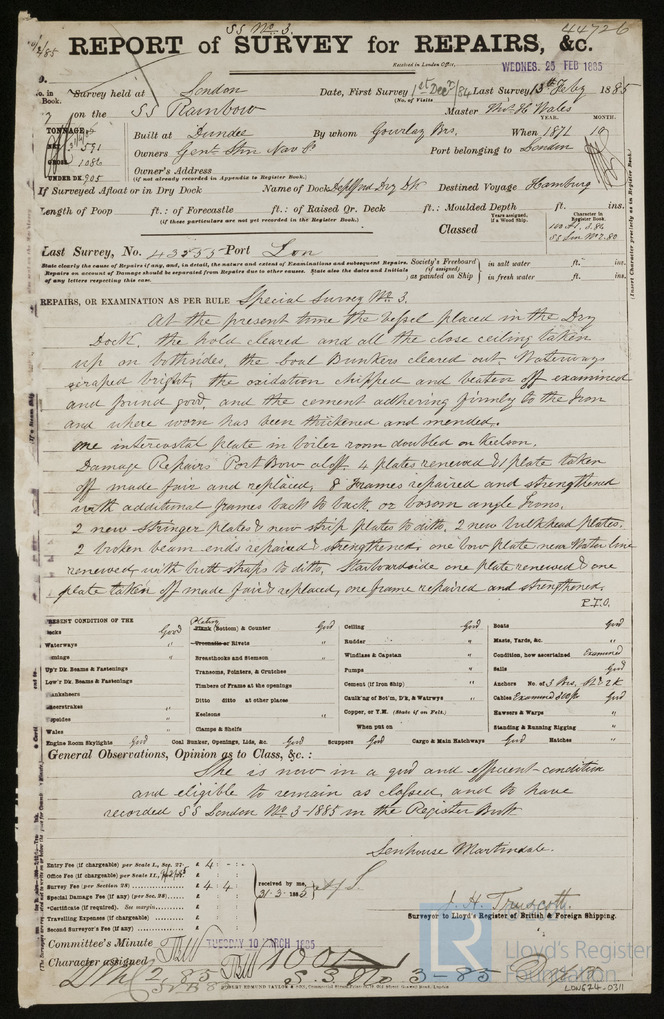 SS No. 3.
44726
REPORT of SURVEY for REPAIRS, &c.
Received in London Office,
WEDNES. 25 FEB 1885
No. in Book. Survey held at London Date, First Survey 1st Decr/84 Last Survey 13th Feby 1885
(No. of Visits
on the SS Rainbow Master Thos. H. Wales
TONNAGE
YEAR. MONTH.
Built at Dundee By whom Gourlay Bros. When 1871 10
NET 591
GROSS 1086
UNDER DK. 905
Owners Genl. Stm Nav Co Port belonging to London
Owner's Address
(if not already recorded in Appendix to Register Book.)
If Surveyed Afloat or in Dry Dock Name of Dock Deptford Dry Dk Destined Voyage Hamburg
Length of Poop ft.: of Forecastle ft.: of Raised Qr. Deck ft.: Moulded Depth ft. ins.
(if these particulars are not yet recorded in the Register Book.)
Years assigned, if a Wood Ship.
Character in Register Book.
Classed
100 A1. 3.84
SS Lon No 2.80
(Insert Character precisely as in Register Book.)
Last Survey, No. 43555 Port Lon
State clearly the cause of Repairs if any, and, in detail, the nature and extent of Examinations and subsequent Repairs.
Repairs on account of Damage should be separated from Repairs due to other causes. State also the dates and Initials
of any letters respecting this case.
Society's Freeboard (if assigned) as painted on Ship
in salt water ft. ins.
in fresh water ft. ins.
REPAIRS, OR EXAMINATION AS PER RULE Special Survey No. 3.
At the present time the vessel placed in the Dry
Dock, the hold cleared and all the close ceiling taken
up on bothsides, the Coal Bunkers cleared out. Waterways
scraped bright, the oxidation chipped and beaten off examined
and found good, and the cement adhering firmly to the Iron
and where worn has been thickened and mended.
one intercostal plate in boiler room doubled on keelson.
Damage Repairs Port Bow aloft. 4 plates renewed & 1 plate taken
off made fair and replaced, 8 Frames repaired and strengthened
with additional frames back to back or bosom angle Irons.
2 new stringer plates & new strip plates to ditto. 2 new bulkhead plates.
2 broken beam ends repaired & strengthened, one bow plate near Water line
renewed, with butt straps to ditto. Starboardside one plate renewed & one
plate taken off made fair & replaced, one frame repaired and strengthened.
P.T.O.
PRESENT CONDITION OF THE
Decks Good
Waterways "
Comings "
Up'r Dk. Beams & Fastenings
Low'r Dk. Beams & Fastenings
Planksheers
Sheerstrakes "
Topsides "
Wales "
Engine Room Skylights Good
Plating
Plank (Bottom) & Counter Good
Treenails or Rivets "
Breasthooks and Stemson "
Transoms, Pointers, & Crutches
Timbers of Frame at the openings
Ditto ditto at other places
Keelsons "
Clamps & Shelfs
Coal Bunker, Openings, Lids, &c. Good
Ceiling Good
Rudder "
Windlass & Capstan "
Pumps "
Cement (if Iron Ship) "
Caulk'ng of Bot'm, D'k, & Watrwys "
Copper, or Y.M. (State if on Felt.)
When put on
Scuppers Good
Cargo & Main Hatchways Good
Boats Good
Masts, Yards, &c. "
Condition, how ascertained Examined
Sails Good
Anchors No. of 3 Brs.
Cables Examined Good
Hawsers & Warps "
Standing & Running Rigging "
Hatches "
General Observations, Opinion as to Class, &c. :
She is now in a good and efficient condition
and eligible to remain as classed, and to have
recorded SS London No. 3-1885 in the Register Book
Senhouse Martindale.
Entry Fee (if chargeable) per Scale I., Sec. 27. £ 4 : - : -
Office Fee (if chargeable) per Scale II.,
Survey Fee (per Section 28) £ 4 : 4 :
Special Damage Fee (if any) (per Sec. 28) £
*Certificate (if required). See margin. £
Travelling Expenses (if chargeable) £
Second Surveyor's Fee (if any) £
received by me,
21.3.1885
J. H. Truscott
Surveyor to Lloyd's Register of British & Foreign Shipping.
Committee's Minute TUESDAY 10 MARCH 1885
Character assigned 100 A1
2.85
S.S. No 3-85
LR
Lloyd's Register
Foundation
LON674-0311